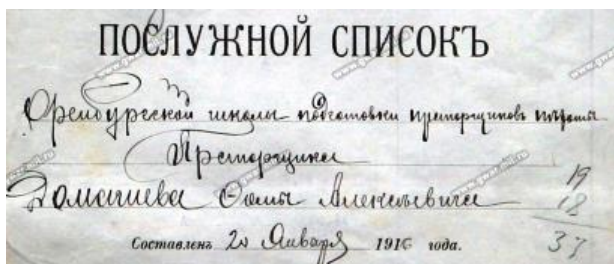 ПОСЛУЖНОЙ СПИСОКЪ
Оренбургской школы подготовки прапорщиковъ пѣхоты
Прапорщика
Домашева Фомы Алексѣевича
19
18
37
Составленъ 20 Января 1916 года.